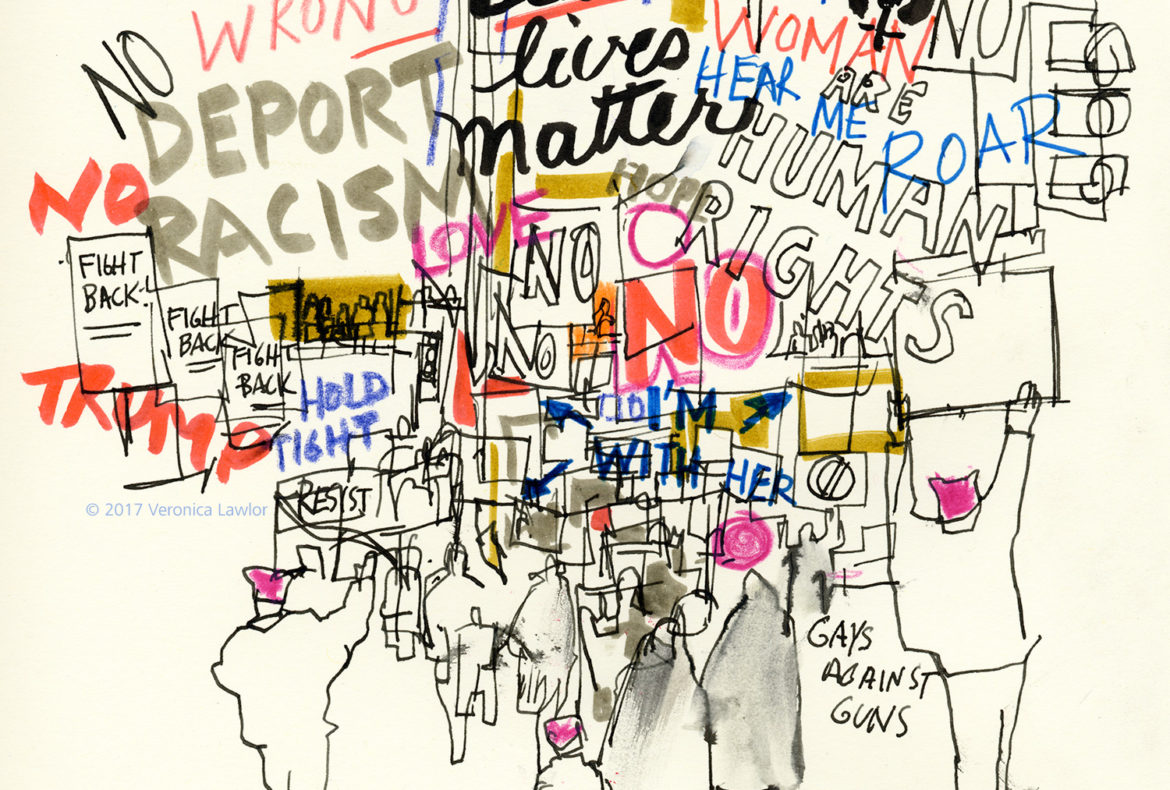 WRONG
NO
DEPORT
RACISM
lives
matter
WOMAN
HEAR
ME
ROAR
NO
ARE
HUMAN
RIGHTS
HOPE
LOVE
NO
NO
NO
NO
FIGHT
BACK!
FIGHT
BACK
FIGH
BACK
TRUMP
HOLD
TIGHT
I'M
WITH HER
RESIST
© 2017 Veronica Lawlor
GAYS
AGAINST
GUNS